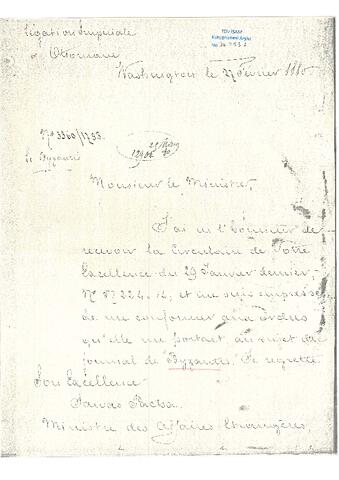 Légation Impériale
Ottomane
TDV İSAM
Kütüphanesi Arşivi
No
Washington le 27 Février 1880
No 3360/1793
Le Byzantis
Monsieur le Ministre,
J'ai eu l'honneur de
recevoir la Circulaire de Votre
Excellence du 29 Janvier dernier,
No
et me suis empressé
de me conformer aux ordres
qu'elle me portait au sujet du
journal de "Byzantis". Je regrette
Son Excellence
Sawas Pacha
Ministre des Affaires Etrangères,